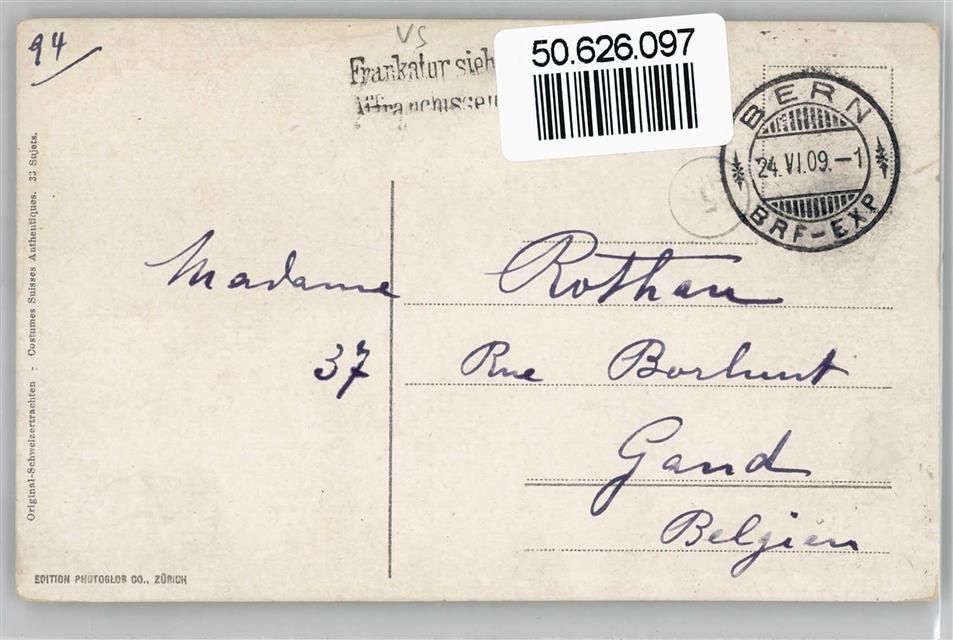 94
VS
Frankatur sieh
Affranchisseu
50.626.097
BERN
24.VI.09.-1
BRF-EXP
5
Madame Rothan
37 Rue Borluut
Gand
Belgien
Original-Schweizertrachten - Costumes Suisses Authentiques. 33 Sujets.
EDITION PHOTOGLOB CO., ZÜRICH